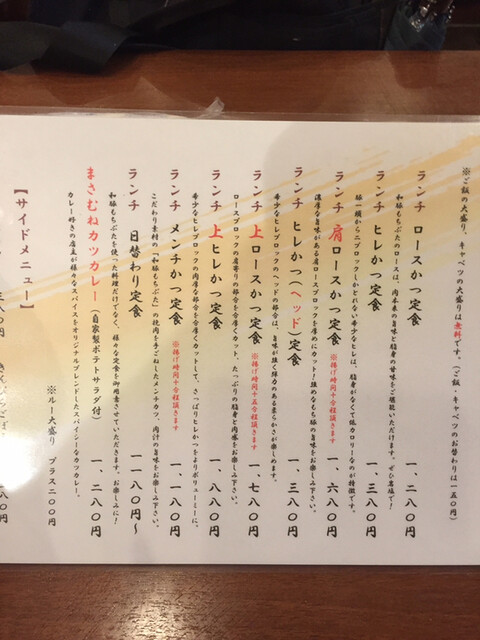 ※ご飯の大盛り、キャベツの大盛りは無料です。（ご飯・キャベツのお替わりは一五〇円）
ランチ ロースかつ定食 一、二八〇円
和豚もちぶたのロースは、肉本来の旨味と脂身の甘味をご堪能いただけます。ぜひ岩塩で！
ランチ ヒレかつ定食 一、三八〇円
豚一頭から二ブロックしかとれない希少なヒレは、脂身がなくて低カロリーなのが特徴です。
ランチ 肩ロースかつ定食 ※揚げ時間十分程頂きます 一、六八〇円
濃厚な旨味がある肩ロースブロックを厚めにカット！強めなもち豚の旨味をお楽しみ下さい。
ランチ ヒレかつ（ヘッド）定食 一、三八〇円
希少なヒレブロックのヘッドの部分は、旨味が強く弾力のある柔らかさが楽しめます。
ランチ 上ロースかつ定食 ※揚げ時間十五分程頂きます 一、七八〇円
ロースブロックの肩寄りの部分を分厚くカット。たっぷりの脂身と肉感をお楽しみ下さい。
ランチ 上ヒレかつ定食 ※揚げ時間十分程頂きます 一、八八〇円
希少なヒレブロックの肉厚な部分を分厚くカットして、さっぱりヒレかつをよりボリューミーに。
ランチ メンチかつ定食 一、一八〇円
こだわり素材の「和豚もちぶた」の挽肉を手ごねしたメンチカツ。肉汁の旨味をお楽しみ下さい。
ランチ 日替わり定食 一一八〇円～
和豚もちぶたを使った料理だけでなく、様々な定食を御用意させていただきます。お楽しみに！
まさむねカツカレー（自家製ポテトサラダ付） 一、二八〇円
カレー好きの店主が様々なスパイスをオリジナルブレンドしたスパイシーなカツカレー。
※ルー大盛り プラス二〇〇円
【サイドメニュー】